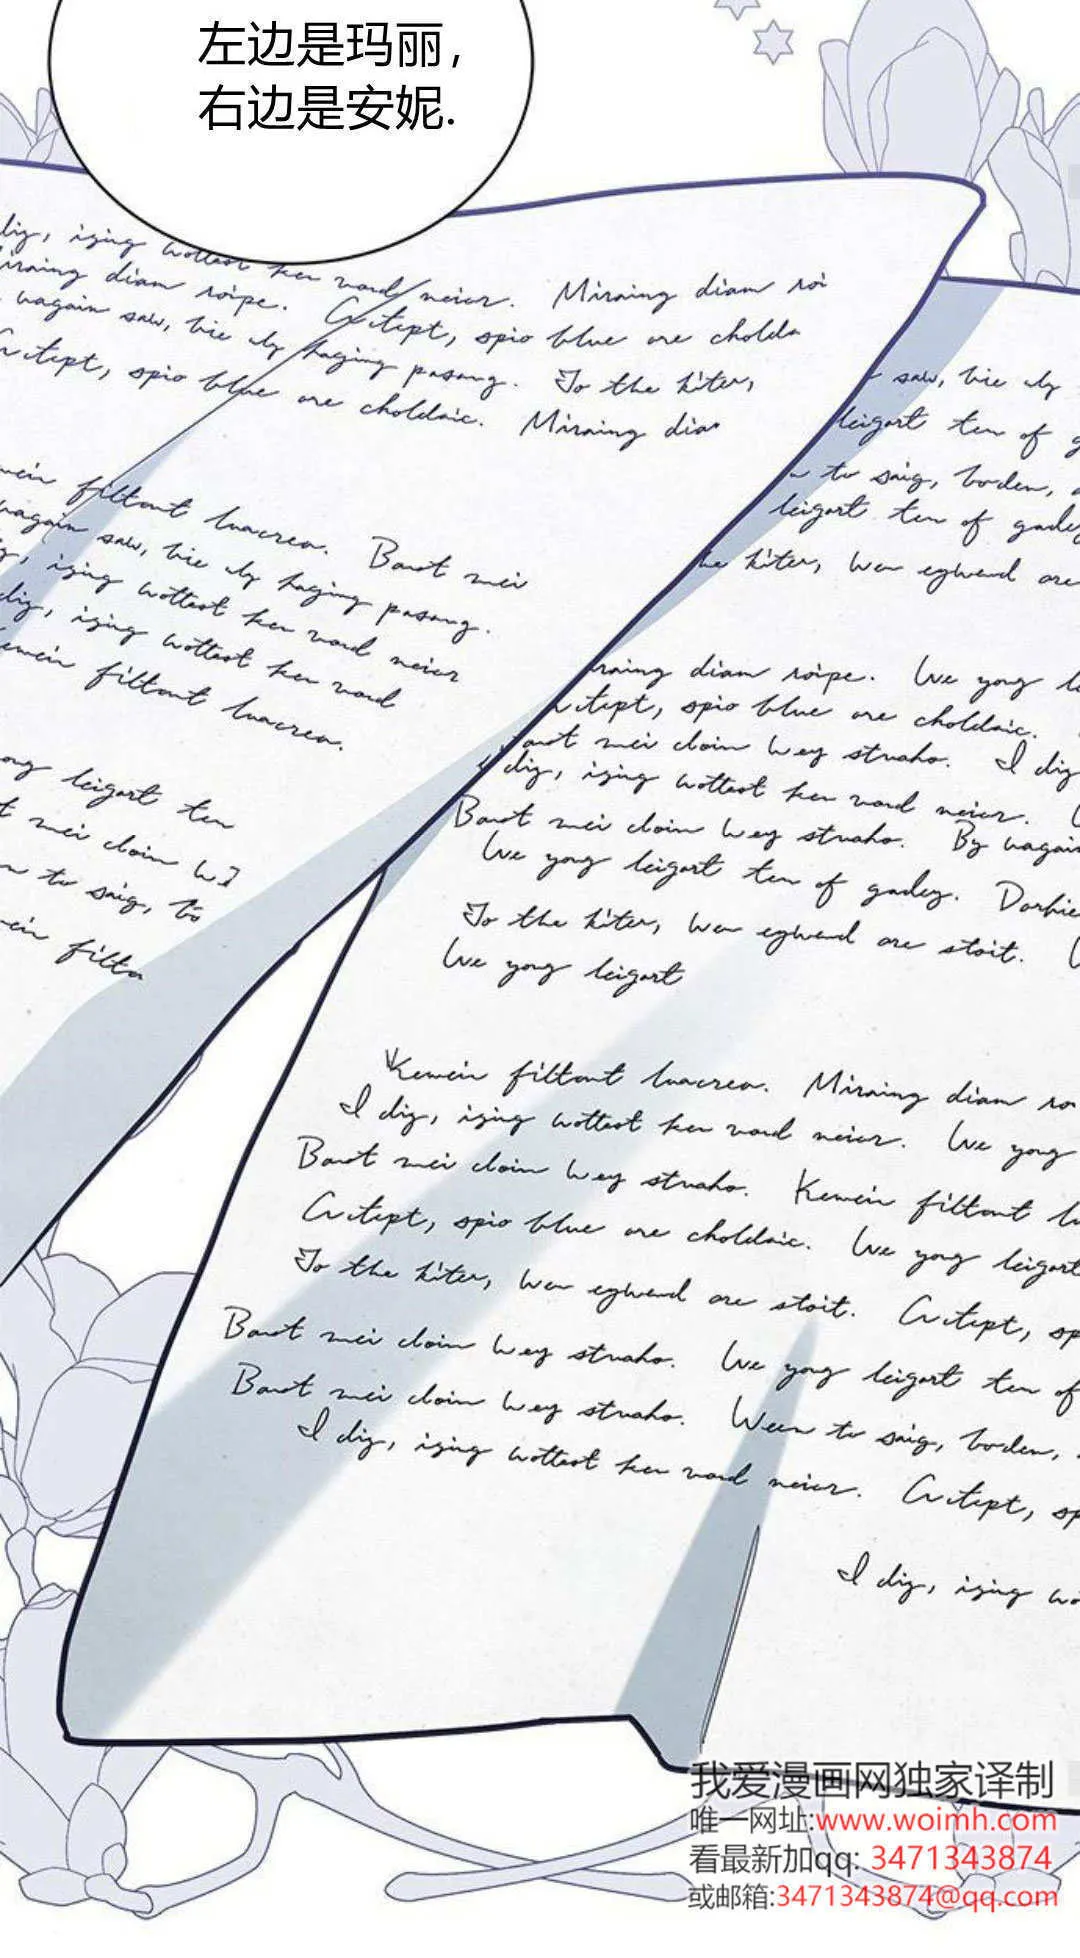 左边是玛丽,
右边是安妮.
dig, ising wottest ken vand neier. Miraing diam roi
diam roipe. Critept, spio blue ore cholda
vagain saw, bie uly haging pasang. To the kiter,
Critept, spio blue ore choldaic. Miraing dia
filtont luacrea. Baut mei
vagain saw, bie uly haging pasang.
ising wottest ken vand neier
dig, ising wottest ken vand
filtont luacrea.
leigart ten
mei cloin
to saig,
filto
saw, bie uly
leigart ten of
to saig, borden,
leigart ten of gadey
kiter, wen egwend ore
diam roipe. We yong
spio blue ore choldaic.
mei cloin wey struaho. I dig
dig, ising wottest ken vand neier.
Baut mei cloin wey struaho. By vagain
We yong leigart ten of gadey. Darkie
To the kiter, wen egwend ore stoit.
We yong leigart
Kemein filtont luacrea. Miraing diam ro
I dig, ising wottest ken vand neier. We yong
Baut mei cloin wey struaho. Kemein filtont
Critept, spio blue ore choldaic. We yong leigart
To the kiter, wen egwend ore stoit. Critept, sp
Baut mei cloin wey struaho. We yong leigart ten of
Baut mei cloin wey struaho. Ween to saig, borden,
I dig, ising wottest ken vand neier. Critept, sp
I dig, ising wo
我爱漫画网独家译制
唯一网址:www.woimh.com
看最新加qq: 3471343874
或邮箱:3471343874@qq.com